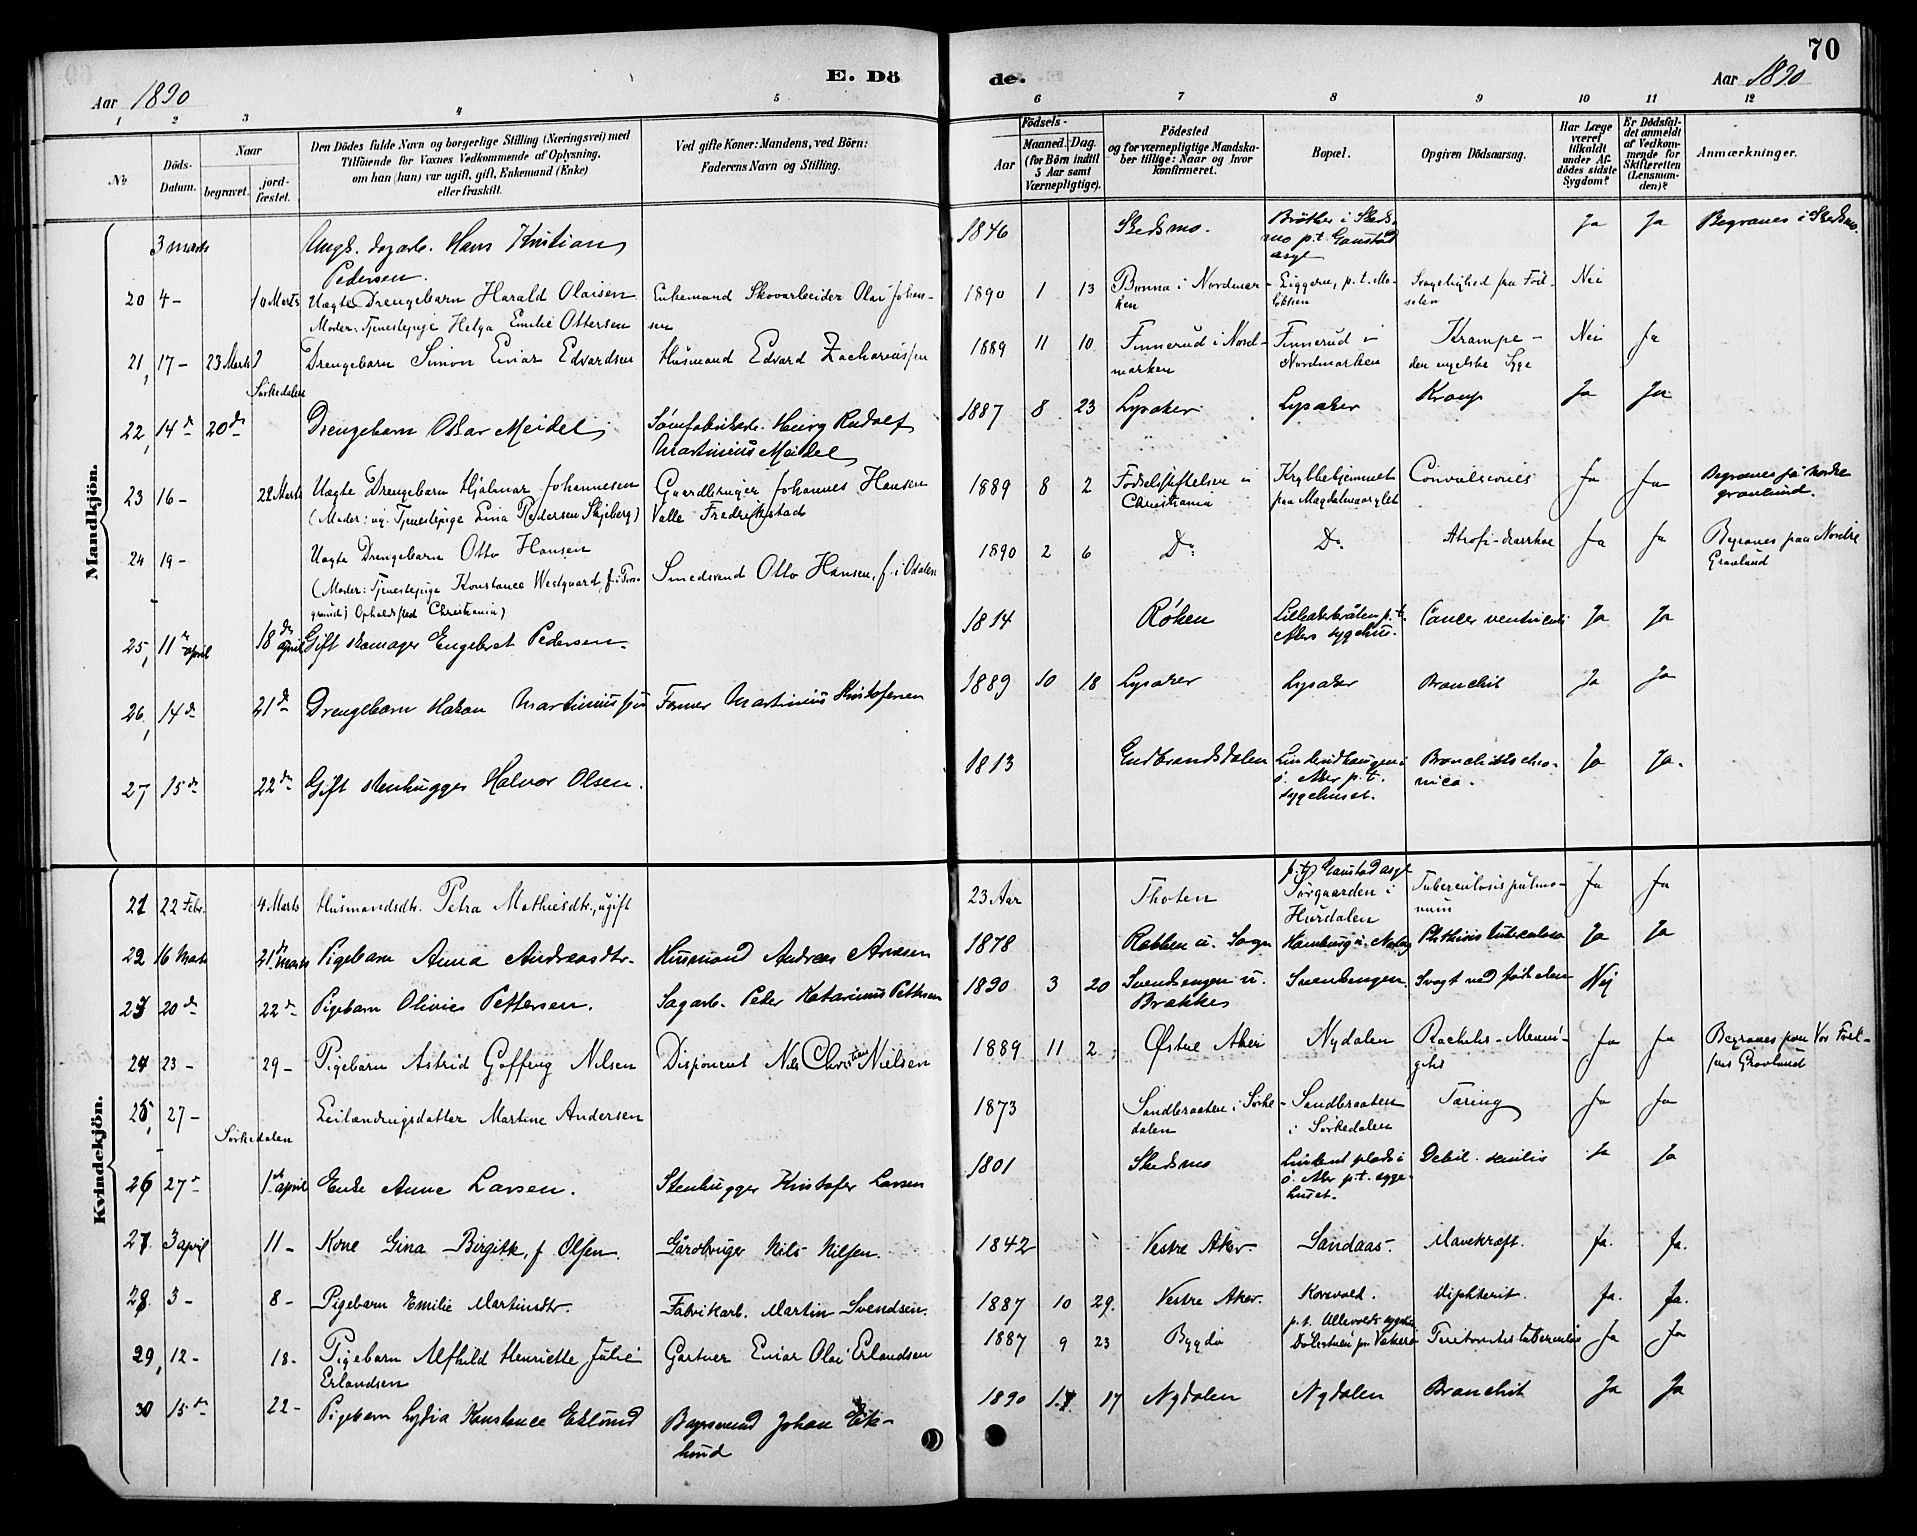 70
E. Dö
de.
Aar 1890
Aar 1890
1 2 3 4 5 6 7 8 9 10 11 12
No
Döds-Datum.
Naar
begravet.
jord-fæstet.
Den Dödes fulde Navn og borgerlige Stilling (Næringsvei) med
Tilföiende for Voxnes Vedkommende af Oplysning,
om han (hun) var ugift, gift, Enkemand (Enke)
eller fraskilt.
Ved gifte Koner: Mandens, ved Börn:
Faderens Navn og Stilling.
Födsels-
Aar
Maaned. Dag.
(for Börn indtil
5 Aar samt
Værnepligtige).
Födested
og for værnepligtige Mandska-
ber tillige: Naar og hvor
konfirmeret.
Bopæl.
Opgiven Dödsaarsag.
Har Læge
været
tilkaldt
under Af-
dödes sidste
Sygdom?
Er Dödsfal-
det anmeldt
af Vedkom-
mende for
Skifteretten
(Lensman-
den)?
Anmærkninger.
Mandkjön.
3 marts Ungk. dagarb. Hans Kristian 1846 Skedsmo. Brötter i Skeds- Ja Ja Begraves i Skedsmo.
Pedersen. mo p.t. Gaustad
asyl
20 4 - 10 Marts Uægte Drengebarn Harald Olaisen Enkemand Skovarbeider Olai Johan- 1890 1 13 Bonna i Nordmar- Svagelighed fra Föd- Nei
Moder: Tjenestepige Helga Emilie Ottersen sen ken selen
21, 17 - 23 Marts Drengebarn Simon Einar Edvardsen Husmand Edvard Zachariassen 1889 11 10 Finnerud i Nord- Finnerud i Krampe - Nei Ja
Sörkedalen marken Nordmarken den engelske Syge
22, 14 de 20 de Drengebarn Oskar Meidel Sömfabrikarb. Rudolf 1887 8 23 Lysaker Lysaker Kroup Ja Ja
Martinius Meidel
23 16 - 22 Marts Uægte Drengebarn Hjalmar Johannesen Gaardbruger Johannes Hansen 1889 8 2 Födselsstiftelsen i Krybbehjemmet Convulsiones Ja Ja Begraves på Nordre
(Moder: ug. Tjenestepige Lina Pedersen Skjeberg) Valle Fredrikstad Christiania paa Magdalenaasylet gravlund.
24 19 - Uægte Drengebarn Otto Hansen Smedsvend Otto Hansen, f. i Odalen 1890 2 6 Do Do Atrofi-diarrhoe Ja Ja Begraves paa Nordre
(Moder: Tjenestepige Konstance Westgaard f. i Gravlund
Opholdssted Christiania)
25, 11 april 18 de april Gift skomager Engebret Pedersen. 1814 Röken Lilleakerbråten p.t. Cancer ventriculi Ja Ja
Akers sygehus.
26, 14 de 21 de Drengebarn Hakon Martiniussen Former Martinius Kristofersen 1889 10 18 Lysaker Lysaker Bronchit Ja Ja
27 15 de 22 de Gift stenhugger Halvor Olsen. 1813 Gudbrandsdalen Linderudhaugen i Bronchitis chro- Ja Ja.
ö. Aker p.t. nica.
sygehuset.
Kvindekjön.
21 22 Febr. 4 Marts Husmandsdtr. Petra Mathiesdtr., ugift 23 Aar Thoten p.t. Gaustad asyl Tuberculosis pulmo- Ja Ja
Sörgaarden i num
Hurdalen
22 16 Marts 21 de Marts Pigebarn Anna Andreasdtr. Husmand Andreas Arnesen 1878 Rabben u. Sogn Phthisis tuberculosa Ja Ja
23 20 de 22 de Pigebarn Olivies Pettersen. Sagarb. Peder Katarinus Pettersen 1890 3 20 Svendsengen u. Svendsengen. Svagt ved födselen Nej
Brækkes
24 23 - 29 - Pigebarn Astrid Goffeng Nilsen Disponent Nils Christian Nielsen 1889 11 2 Östre Aker Nydalen Rachitis - Menin- Ja Ja Begraves paa Vor Frel-
gitis sers Gravlund
25, 27 - Leilændingsdatter Martine Andersen 1873 Sandbraaten i Sörke- Sandbraaten Tæring Ja Ja
Sörkedalen dalen i Sörkedalen
26 27 de 1 ste april Enke Anne Larsen. Stenhugger Kristofer Larsen 1801 Skedsmo Linderud plads i Debil. senilis Ja Ja
ö. Aker p.t. syge-
huset.
27. 3 april 11 - Kone Gina Birgitte, f Olsen. Gårdbruger Nils Nilsen. 1842 Vestre Aker. Sandaas. Mavekræft. Ja. Ja.
28. 3 - 8 - Pigebarn Emilie Martinsdtr. Fabrikarb. Martin Svendsen. 1887 10 29. Vestre Aker. Korsvold. Diphterit. Ja. Ja.
p.t. Ullevolds sygehus
29, 12 - 18 - Pigebarn Alfhild Henriette Julie Gartner Einar Olai Erlandsen 1887 9 23 Bygdö Peritonitis tuberculos Ja Ja
Erlandsen
30 15 de 22 - Pigebarn Lydia Konstance Eklund Bagersvend Johan Ek- 1890 17 Nydalen Nydalen Bronchit Ja Ja
lund